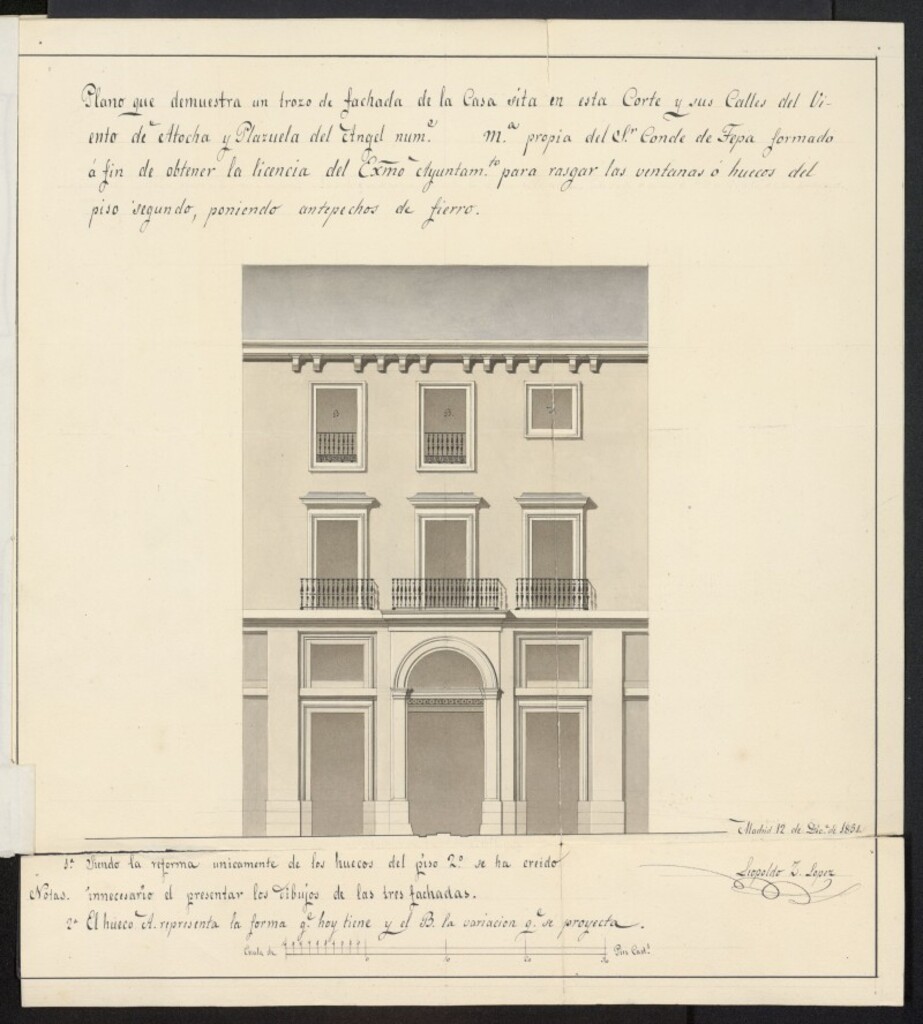 Plano que demuestra un trozo de fachada de la Casa sita en esta Corte y sus Calles del Vi-
ento de Atocha y Plazuela del Angel num.º M.ª propia del S.r Conde de Tepa formado
á fin de obtener la licencia del Exmo Ayuntam.to para rasgar las ventanas ó huecos del
piso segundo, poniendo antepechos de fierro.
B. B.
Madrid 12 de Dic.e de 1851
1ª Siendo la reforma unicamente de los huecos del piso 2º se ha creido
Leopoldo Z. Lopez
Notas. innecesario el presentar los dibujos de las tres fachadas.
2ª El hueco A. representa la forma q.e hoy tiene y el B. la variacion q.e se proyecta.
Escala de Pies Cast.s